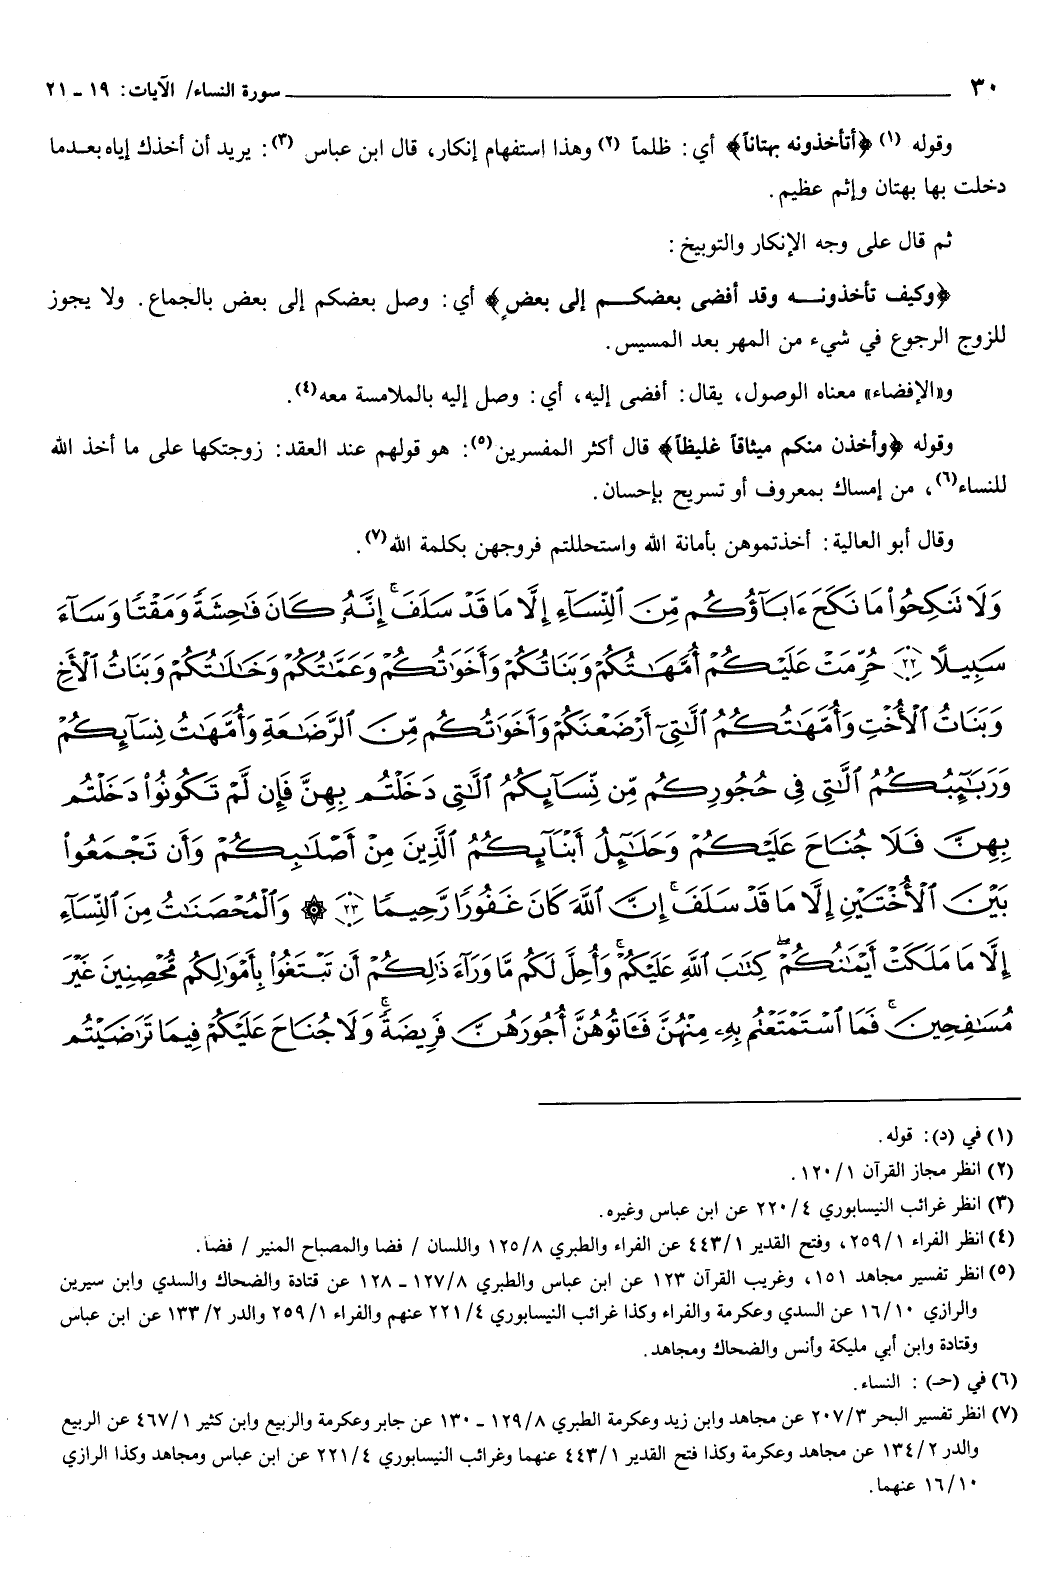 ٣٠ سورة النساء/ الآيات: ١٩ ـ ٢١
وقوله (١) ﴿أتأخذونه بهتاناً﴾ أي: ظلماً (٢) وهذا استفهام إنكار، قال ابن عباس (٣): يريد أن أخذك إياه بعدما
دخلت بها بهتان وإثم عظيم.
ثم قال على وجه الإنكار والتوبيخ:
﴿وكيف تأخذونه وقد أفضى بعضكم إلى بعضٍ﴾ أي: وصل بعضكم إلى بعض بالجماع. ولا يجوز
للزوج الرجوع في شيء من المهر بعد المسيس.
و«الإفضاء» معناه الوصول، يقال: أفضى إليه، أي: وصل إليه بالملامسة معه(٤).
وقوله ﴿وأخذن منكم ميثاقاً غليظاً﴾ قال أكثر المفسرين(٥): هو قولهم عند العقد: زوجتكها على ما أخذ الله
للنساء(٦)، من إمساك بمعروف أو تسريح بإحسان.
وقال أبو العالية: أخذتموهن بأمانة الله واستحللتم فروجهن بكلمة الله(٧).
وَلَا تَنكِحُوا۟ مَا نَكَحَ ءَابَآؤُكُم مِّنَ ٱلنِّسَآءِ إِلَّا مَا قَدْ سَلَفَ ۚ إِنَّهُۥ كَانَ فَٰحِشَةً وَمَقْتًا وَسَآءَ
سَبِيلًا ٢٢ حُرِّمَتْ عَلَيْكُمْ أُمَّهَٰتُكُمْ وَبَنَاتُكُمْ وَأَخَوَٰتُكُمْ وَعَمَّٰتُكُمْ وَخَٰلَٰتُكُمْ وَبَنَاتُ ٱلْأَخِ
وَبَنَاتُ ٱلْأُخْتِ وَأُمَّهَٰتُكُمُ ٱلَّٰتِىٓ أَرْضَعْنَكُمْ وَأَخَوَٰتُكُم مِّنَ ٱلرَّضَٰعَةِ وَأُمَّهَٰتُ نِسَآئِكُمْ
وَرَبَٰٓئِبُكُمُ ٱلَّٰتِى فِى حُجُورِكُم مِّن نِّسَآئِكُمُ ٱلَّٰتِى دَخَلْتُم بِهِنَّ فَإِن لَّمْ تَكُونُوا۟ دَخَلْتُم
بِهِنَّ فَلَا جُنَاحَ عَلَيْكُمْ وَحَلَٰٓئِلُ أَبْنَآئِكُمُ ٱلَّذِينَ مِنْ أَصْلَٰبِكُمْ وَأَن تَجْمَعُوا۟
بَيْنَ ٱلْأُخْتَيْنِ إِلَّا مَا قَدْ سَلَفَ ۗ إِنَّ ٱللَّهَ كَانَ غَفُورًا رَّحِيمًا ٢٣ ۞ وَٱلْمُحْصَنَٰتُ مِنَ ٱلنِّسَآءِ
إِلَّا مَا مَلَكَتْ أَيْمَٰنُكُمْ ۖ كِتَٰبَ ٱللَّهِ عَلَيْكُمْ ۚ وَأُحِلَّ لَكُم مَّا وَرَآءَ ذَٰلِكُمْ أَن تَبْتَغُوا۟ بِأَمْوَٰلِكُم مُّحْصِنِينَ غَيْرَ
مُسَٰفِحِينَ ۚ فَمَا ٱسْتَمْتَعْتُم بِهِۦ مِنْهُنَّ فَـَٔاتُوهُنَّ أُجُورَهُنَّ فَرِيضَةً ۚ وَلَا جُنَاحَ عَلَيْكُمْ فِيمَا تَرَٰضَيْتُم
(١) في (د): قوله.
(٢) انظر مجاز القرآن ١/ ١٢٠.
(٣) انظر غرائب النيسابوري ٤/ ٢٢٠ عن ابن عباس وغيره.
(٤) انظر الفراء ١/ ٢٥٩، وفتح القدير ١/ ٤٤٣ عن الفراء والطبري ٨/ ١٢٥ واللسان / فضا والمصباح المنير / فضا.
(٥) انظر تفسير مجاهد ١٥١، وغريب القرآن ١٢٣ عن ابن عباس والطبري ٨/ ١٢٧ ـ ١٢٨ عن قتادة والضحاك والسدي وابن سيرين
والرازي ١٠/ ١٦ عن السدي وعكرمة والفراء وكذا غرائب النيسابوري ٤/ ٢٢١ عنهم والفراء ١/ ٢٥٩ والدر ٢/ ١٣٣ عن ابن عباس
وقتادة وابن أبي مليكة وأنس والضحاك ومجاهد.
(٦) في (حـ) : النساء.
(٧) انظر تفسير البحر ٣/ ٢٠٧ عن مجاهد وابن زيد وعكرمة الطبري ٨/ ١٢٩ ـ ١٣٠ عن جابر وعكرمة والربيع وابن كثير ١/ ٤٦٧ عن الربيع
والدر ٢/ ١٣٤ عن مجاهد وعكرمة وكذا فتح القدير ١/ ٤٤٣ عنهما وغرائب النيسابوري ٤/ ٢٢١ عن ابن عباس ومجاهد وكذا الرازي
١٠/ ١٦ عنهما.